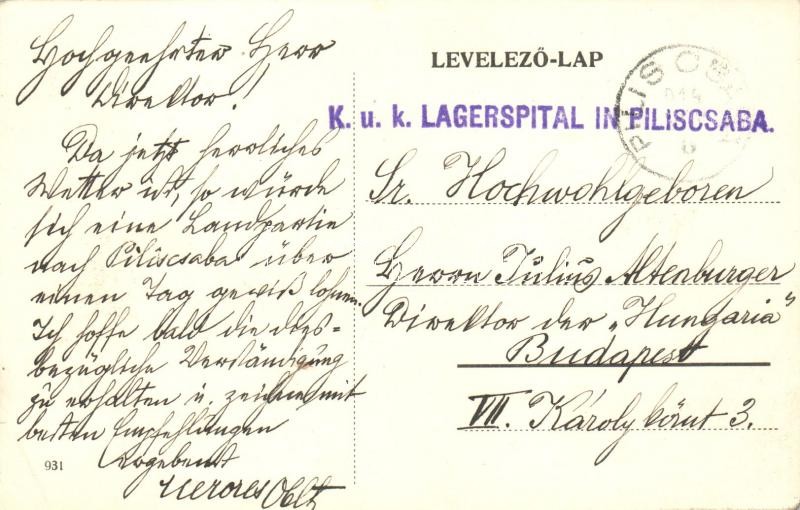 Hochgeehrter Herr
Direktor!
Da jetzt herrliches
Wetter ist, so würde
sich eine Landpartie
nach Piliscsaba über
einen Tag gewiß lohnen.
Ich hoffe bald die dies=
bezügliche Verständigung
zu erhalten u. zeichne mit
besten Empfehlungen
ergebenst
931
LEVELEZŐ-LAP
PILISCSABA
K. u. k. LAGERSPITAL IN PILISCSABA.
Sr. Hochwohlgeboren
Herrn Julius Altenburger
Direktor der „Hungaria"
Budapest
VII. Károly körut 3.